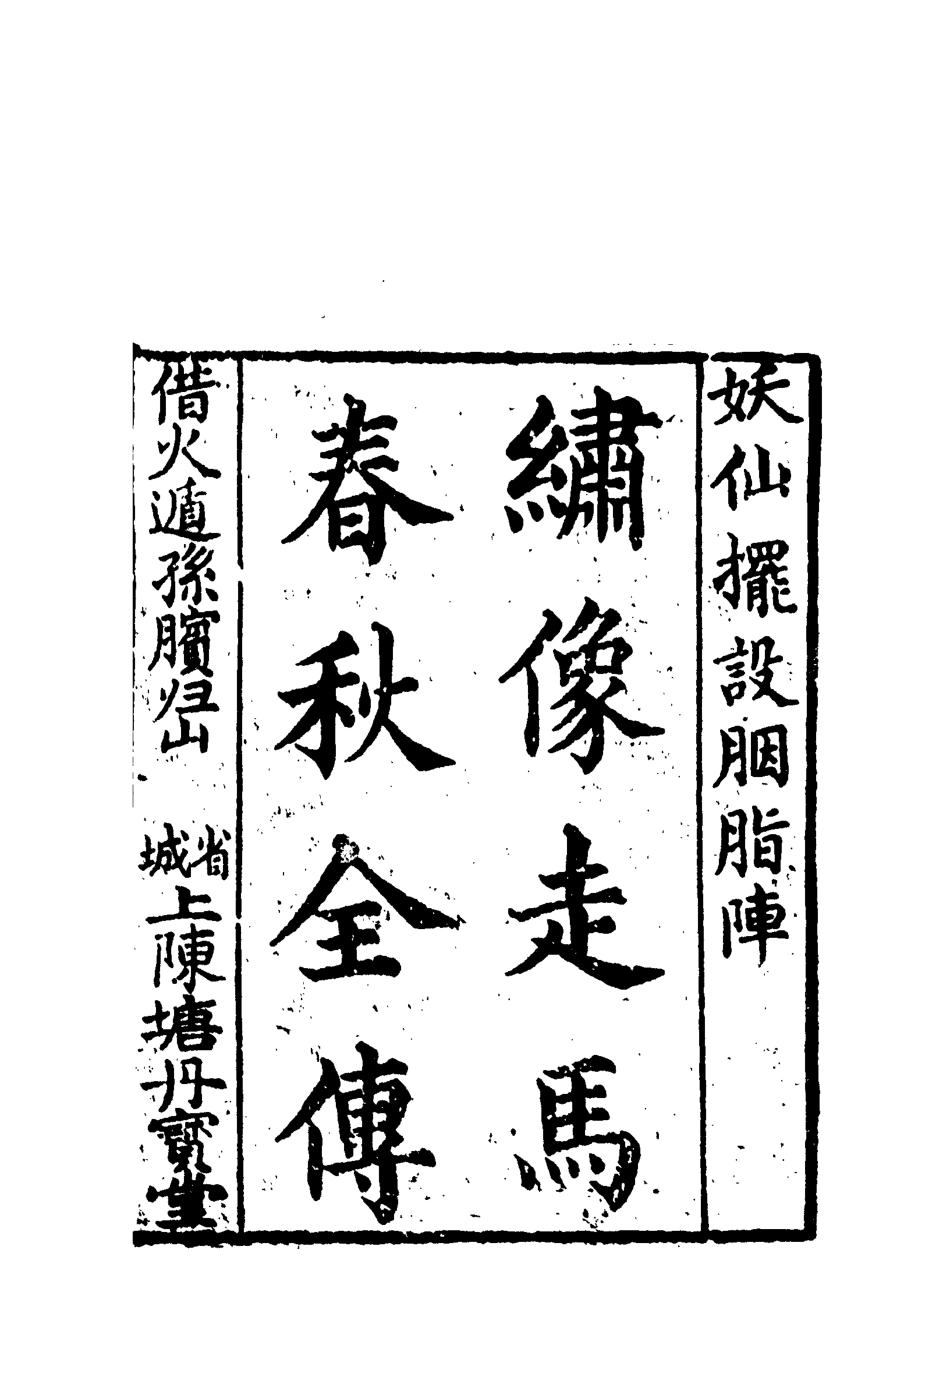 妖仙擺設胭脂陣
繡像走馬
春秋全傳
借火遁孫臏归山
省城
上陳塘丹寳堂